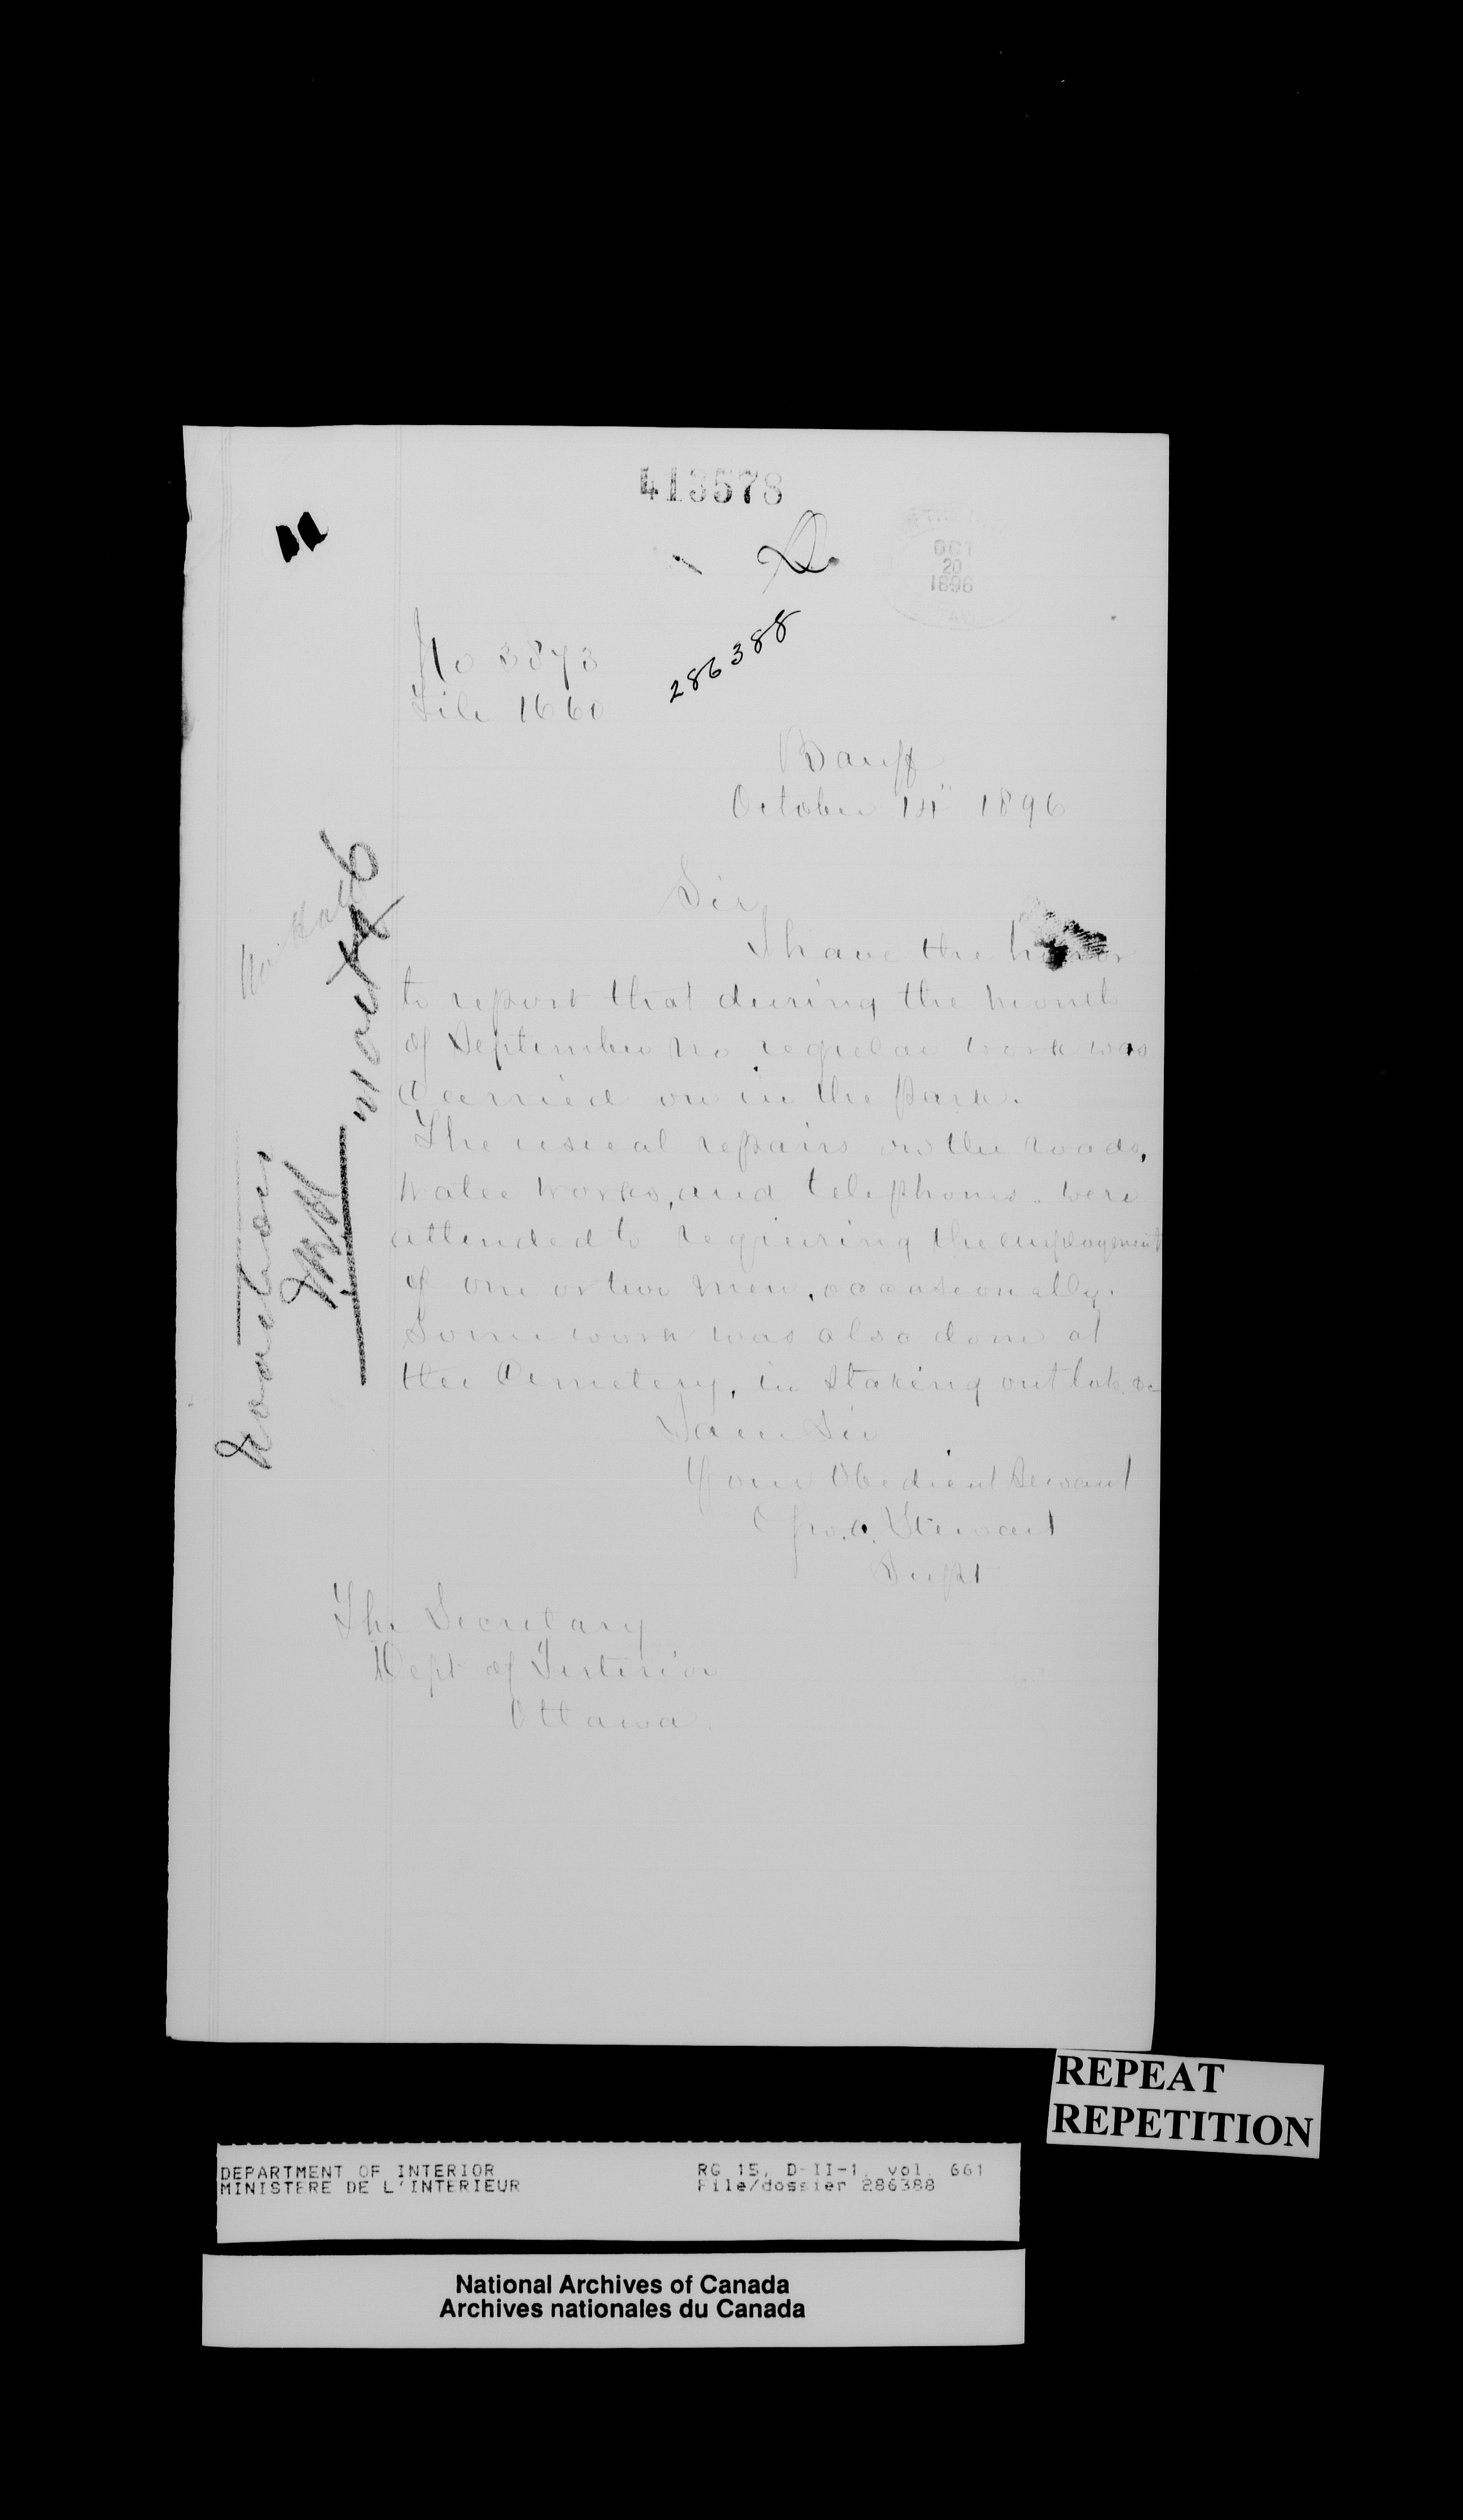 413578
OCT
20
1896
286388
No 3873
File 1660
Banff
October 14" 1896
Sir
I have the honor
to report that during the month
of September no regular work was
carried on in the Park.
The usual repairs on the roads,
water works, and telephone were
attended to requiring the employment
of one or two men, occasionally.
Some work was also done at
the Cemetery, in staking out lots &c
I am Sir
Your Obedient Servant
Geo. A. Stewart
Supt
The Secretary
Dept of Interior
Ottawa
No action
REPEAT
REPETITION
DEPARTMENT OF INTERIOR
MINISTERE DE L'INTERIEUR
RG 15, D-II-1, vol. 661
File/dossier 286388
National Archives of Canada
Archives nationales du Canada